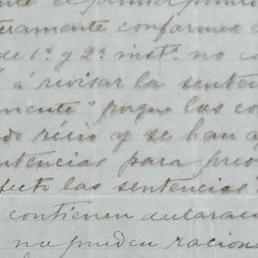 el primer punto
eramente conformes
de 1ª y 2ª instª no
á revisar la senten
mente" porque las co
do recio y se han a
ntencias para
fecto las sentencias
contienen declarac
no pueden racion